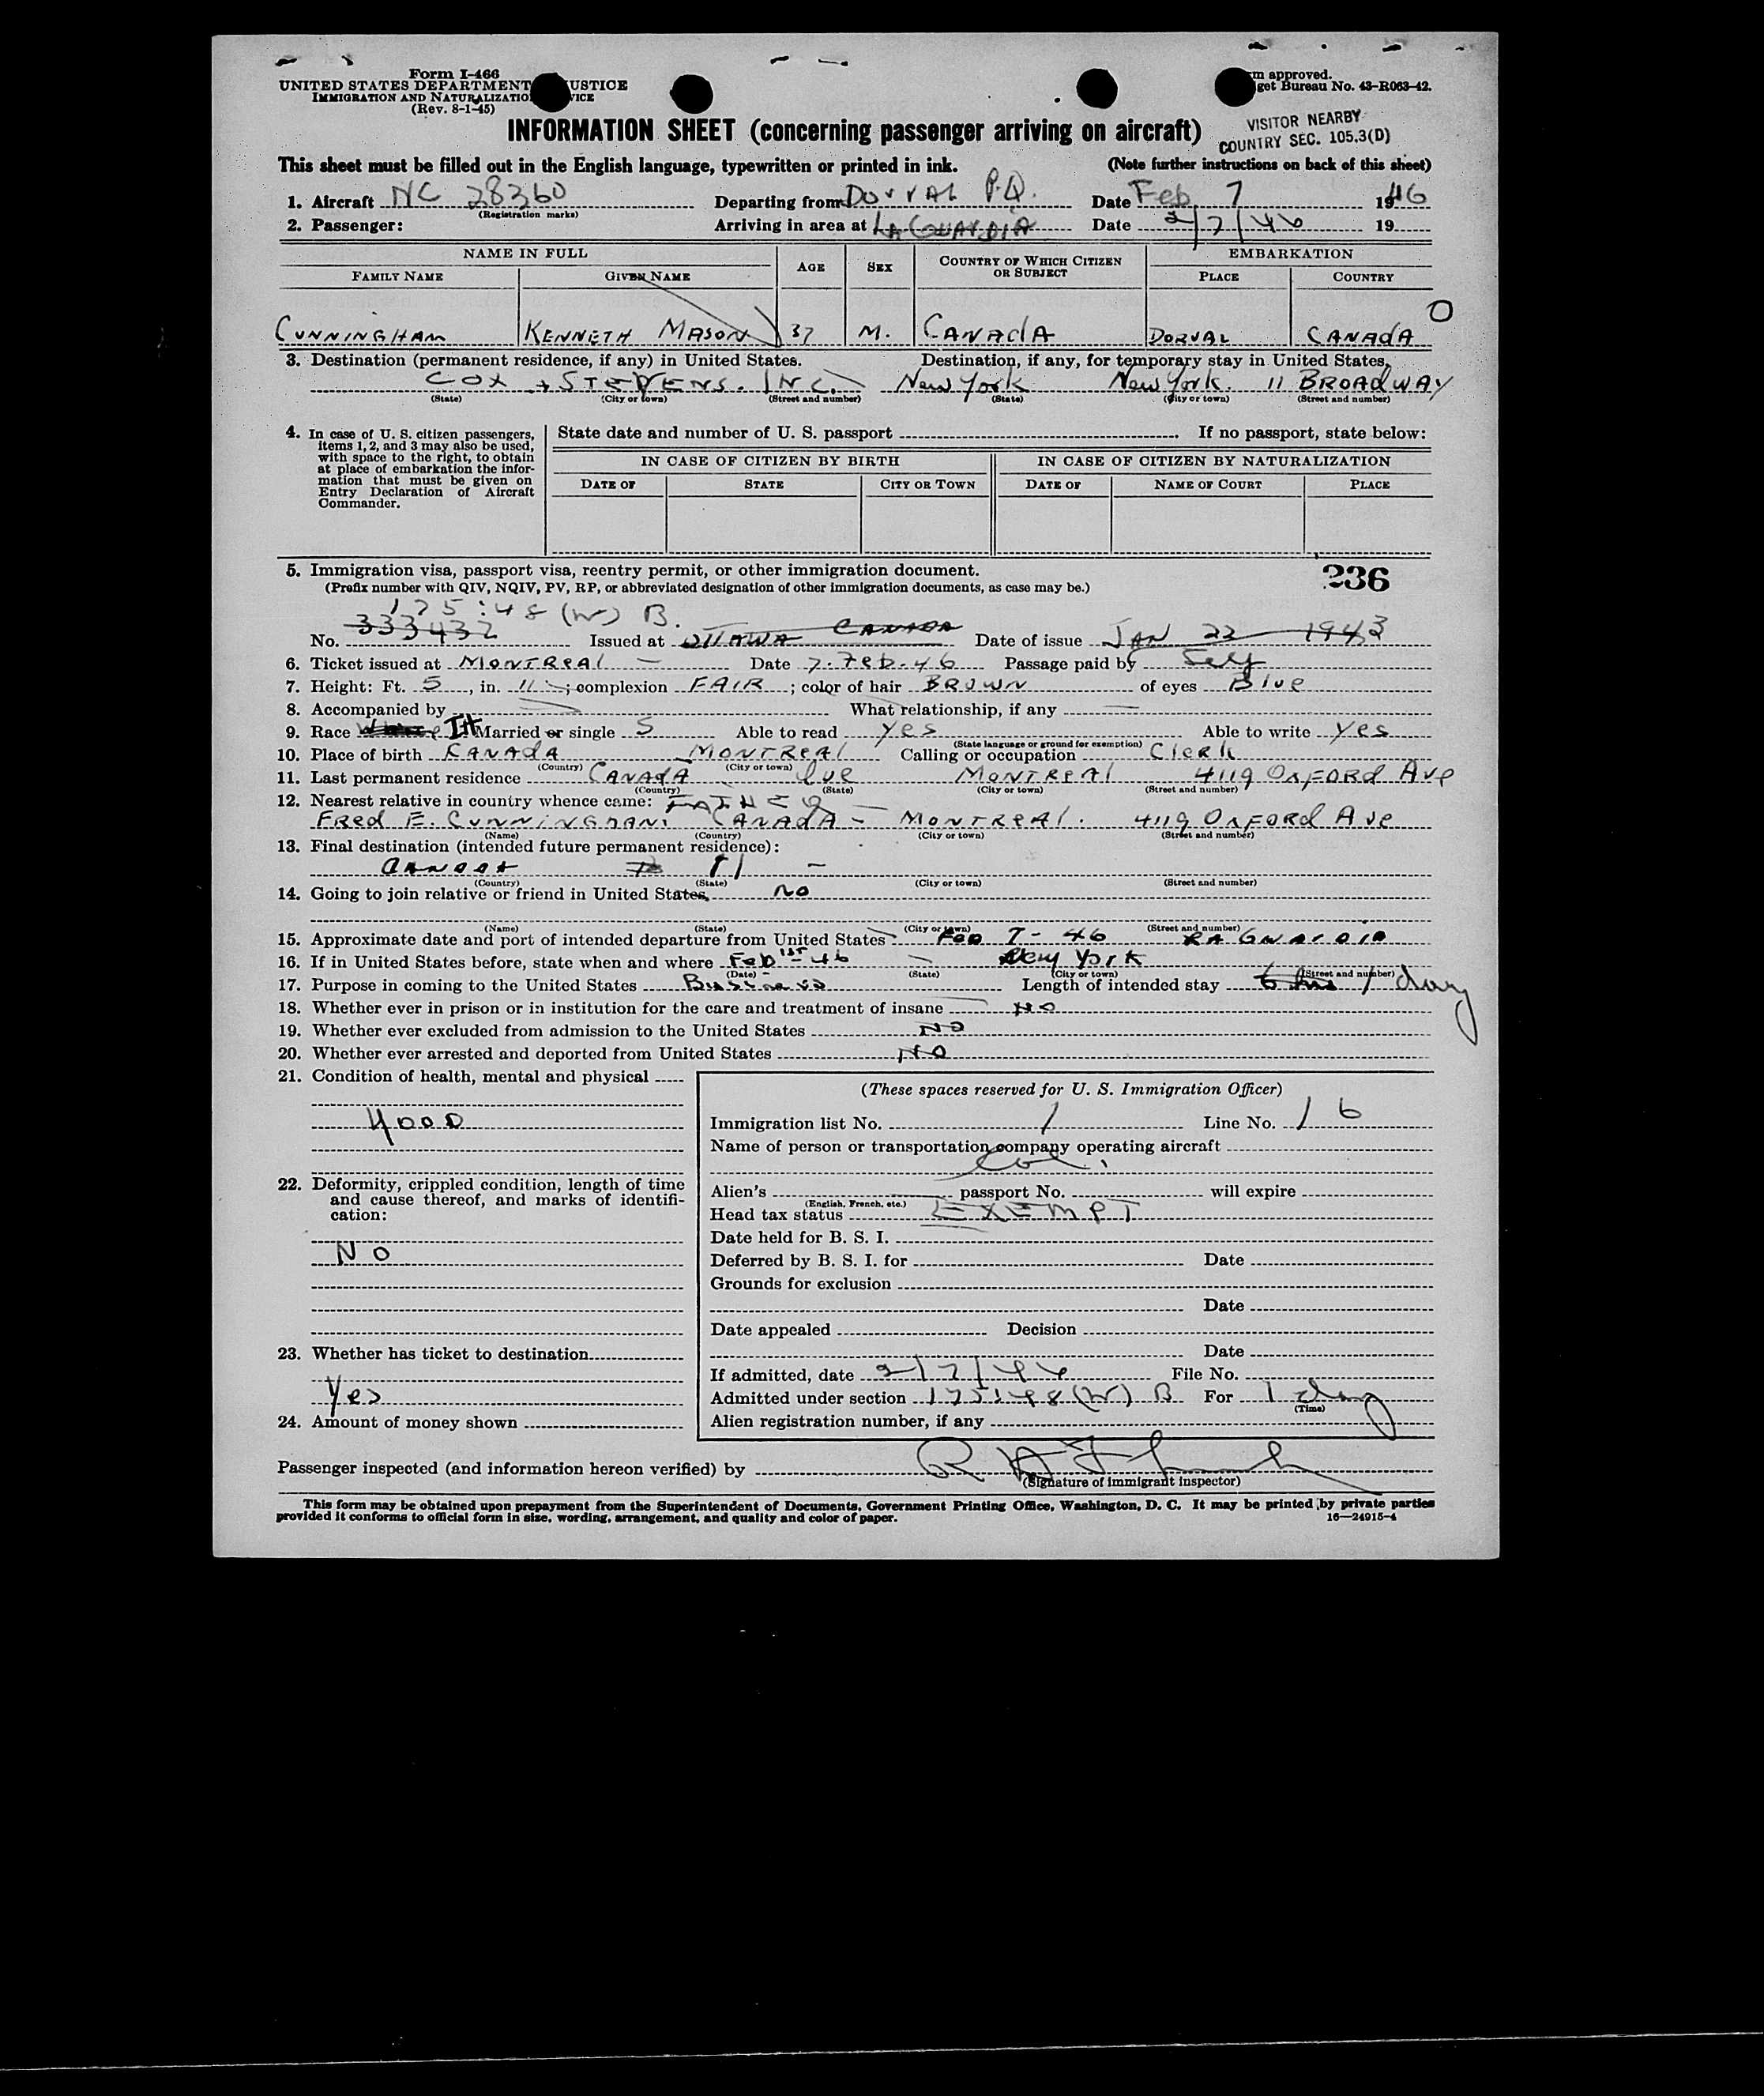 Form I-466
UNITED STATES DEPARTMENT USTICE
IMMIGRATION AND NATURALIZATIO VICE
(Rev. 8-1-45)
m approved.
get Bureau No. 43-R063-42.
INFORMATION SHEET (concerning passenger arriving on aircraft)
VISITOR NEARBY
COUNTRY SEC. 105.3(D)
This sheet must be filled out in the English language, typewritten or printed in ink. (Note further instructions on back of this sheet)
1. Aircraft NC 28360 Departing from DORVAL P.Q. Date Feb 7 1946
(Registration marks)
2. Passenger: Arriving in area at LAGUARDIA Date 2/7/46 19
NAME IN FULL AGE SEX COUNTRY OF WHICH CITIZEN OR SUBJECT EMBARKATION
FAMILY NAME GIVEN NAME PLACE COUNTRY
O
CUNNINGHAM KENNETH MASON 37 M. CANADA DORVAL CANADA
3. Destination (permanent residence, if any) in United States. Destination, if any, for temporary stay in United States.
COX + STEVENS. INC. New York New York. 11 BROADWAY
(State) (City or town) (Street and number) (State) (City or town) (Street and number)
4. In case of U. S. citizen passengers, items 1, 2, and 3 may also be used, with space to the right, to obtain at place of embarkation the information that must be given on Entry Declaration of Aircraft Commander.
State date and number of U. S. passport . If no passport, state below:
IN CASE OF CITIZEN BY BIRTH IN CASE OF CITIZEN BY NATURALIZATION
DATE OF STATE CITY OR TOWN DATE OF NAME OF COURT PLACE
5. Immigration visa, passport visa, reentry permit, or other immigration document. 236
(Prefix number with QIV, NQIV, PV, RP, or abbreviated designation of other immigration documents, as case may be.)
175:48 (W) B.
No. 333432 Issued at OTTAWA CANADA Date of issue JAN 22 1943
6. Ticket issued at MONTREAL Date 7. Feb. 46 Passage paid by Self
7. Height: Ft. 5, in. 11; complexion FAIR; color of hair BROWN of eyes Blue
8. Accompanied by What relationship, if any
9. Race White Married or single S Able to read yes Able to write yes
(State language or ground for exemption)
10. Place of birth CANADA MONTREAL Calling or occupation Clerk
(Country) (City or town)
11. Last permanent residence CANADA Que MONTREAL 4119 OXFORD Ave
(Country) (State) (City or town) (Street and number)
12. Nearest relative in country whence came: FATHER
FRed E. CUNNINGHAM CANADA - MONTREAL. 4119 OXFORD Ave
(Name) (Country) (City or town) (Street and number)
13. Final destination (intended future permanent residence):
CANADA
(Country) (State) (City or town) (Street and number)
14. Going to join relative or friend in United States. no
(Name) (State) (City or town) (Street and number)
15. Approximate date and port of intended departure from United States Feb 7-46 LAGUARDIA
16. If in United States before, state when and where Feb 1st-46 New York
(Date) (State) (City or town) (Street and number)
17. Purpose in coming to the United States Business Length of intended stay 6 hrs 1 day
18. Whether ever in prison or in institution for the care and treatment of insane NO
19. Whether ever excluded from admission to the United States NO
20. Whether ever arrested and deported from United States NO
21. Condition of health, mental and physical
GOOD
22. Deformity, crippled condition, length of time and cause thereof, and marks of identification:
NO
23. Whether has ticket to destination
Yes
24. Amount of money shown
(These spaces reserved for U. S. Immigration Officer)
Immigration list No. 1 Line No. 16
Name of person or transportation company operating aircraft
Col.
Alien's passport No. will expire
(English, French, etc.)
Head tax status EXEMPT
Date held for B. S. I.
Deferred by B. S. I. for Date
Grounds for exclusion
Date
Date appealed Decision
Date
If admitted, date 2/7/46 File No.
Admitted under section 175:48(W) B For 1 day
(Time)
Alien registration number, if any
Passenger inspected (and information hereon verified) by
(Signature of immigrant inspector)
This form may be obtained upon prepayment from the Superintendent of Documents, Government Printing Office, Washington, D. C. It may be printed by private parties
provided it conforms to official form in size, wording, arrangement, and quality and color of paper. 16—24915-4